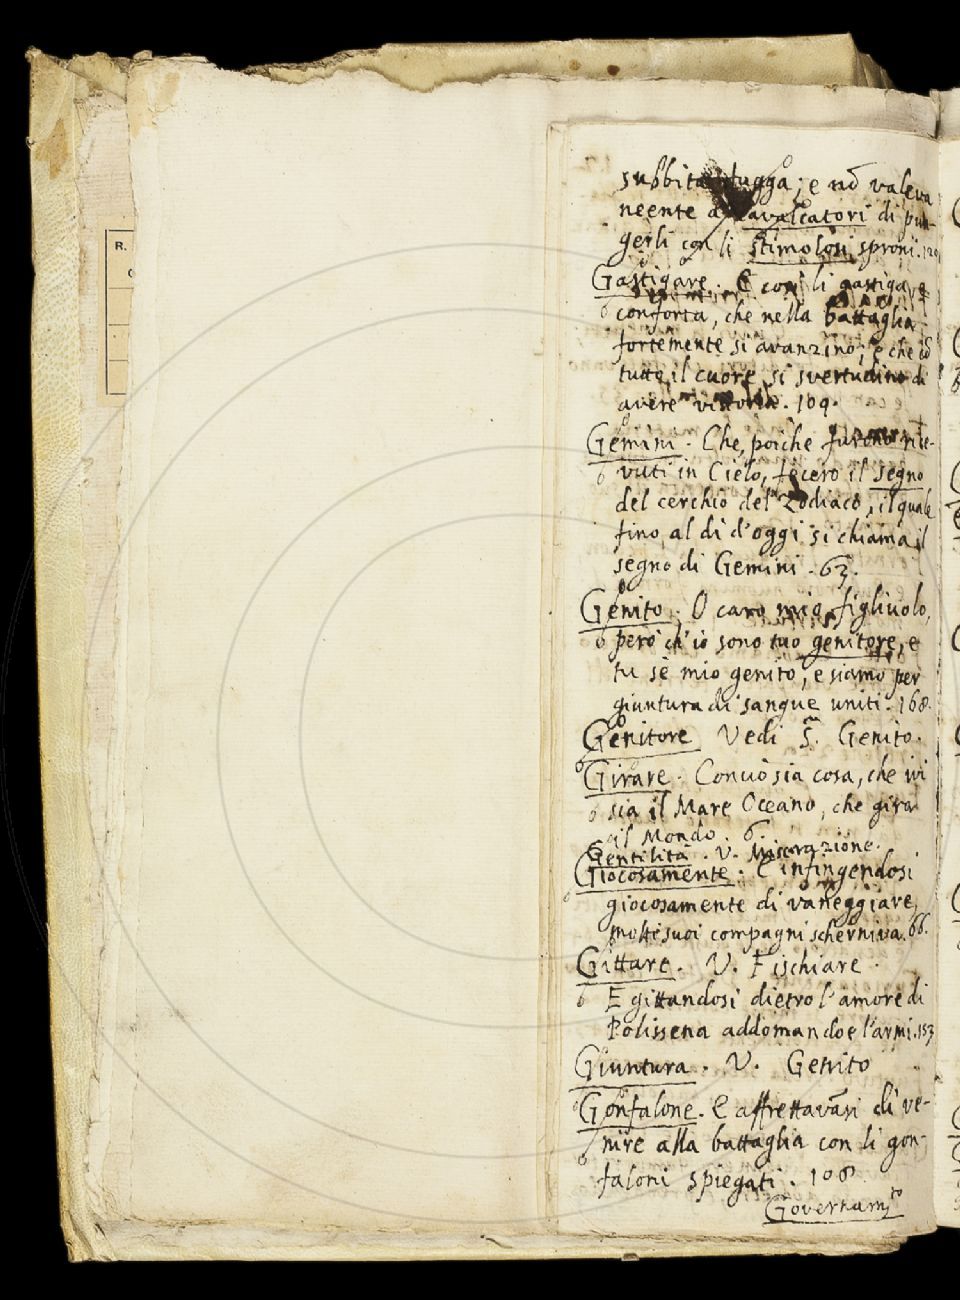 R.
subbita fugga; e nō valeva
neente a cavalcatori di pun-
gerli con li stimolosi sproni. 120
Gastigare. E così li gastiga, e
conforta, che nella battaglia
fortemente si avanzino; e che cō
tutto il cuore si svertudino di
avere vittoria. 109.
Gemini. Che, poiche furono rice-
vuti in Cielo, fecero il segno
del cerchio del Zodiaco, il quale
fino al dì d'oggi si chiama il
segno di Gemini. 63.
Genito. O caro mio figliuolo,
però ch'io sono tuo genitore, e
tu sè mio genito, e siamo per
giuntura di sangue uniti. 168.
Genitore Vedi S. Genito.
Girare. Conciosia cosa, che ivi
sia il Mare Oceano, che gira
il Mondo. 6.
Gentilità. V. Miserazione.
Giocosamente. E infingendosi
giocosamente di vaneggiare,
molti suoi compagni scherniva. 66.
Gittare. V. Fischiare.
E gittandosi dietro l'amore di
Polissena addomandoe l'armi. 153
Giuntura. V. Genito
Gonfalone. E affrettavāsi di ve-
nire alla battaglia con li gon-
faloni spiegati. 108.
Governam.to